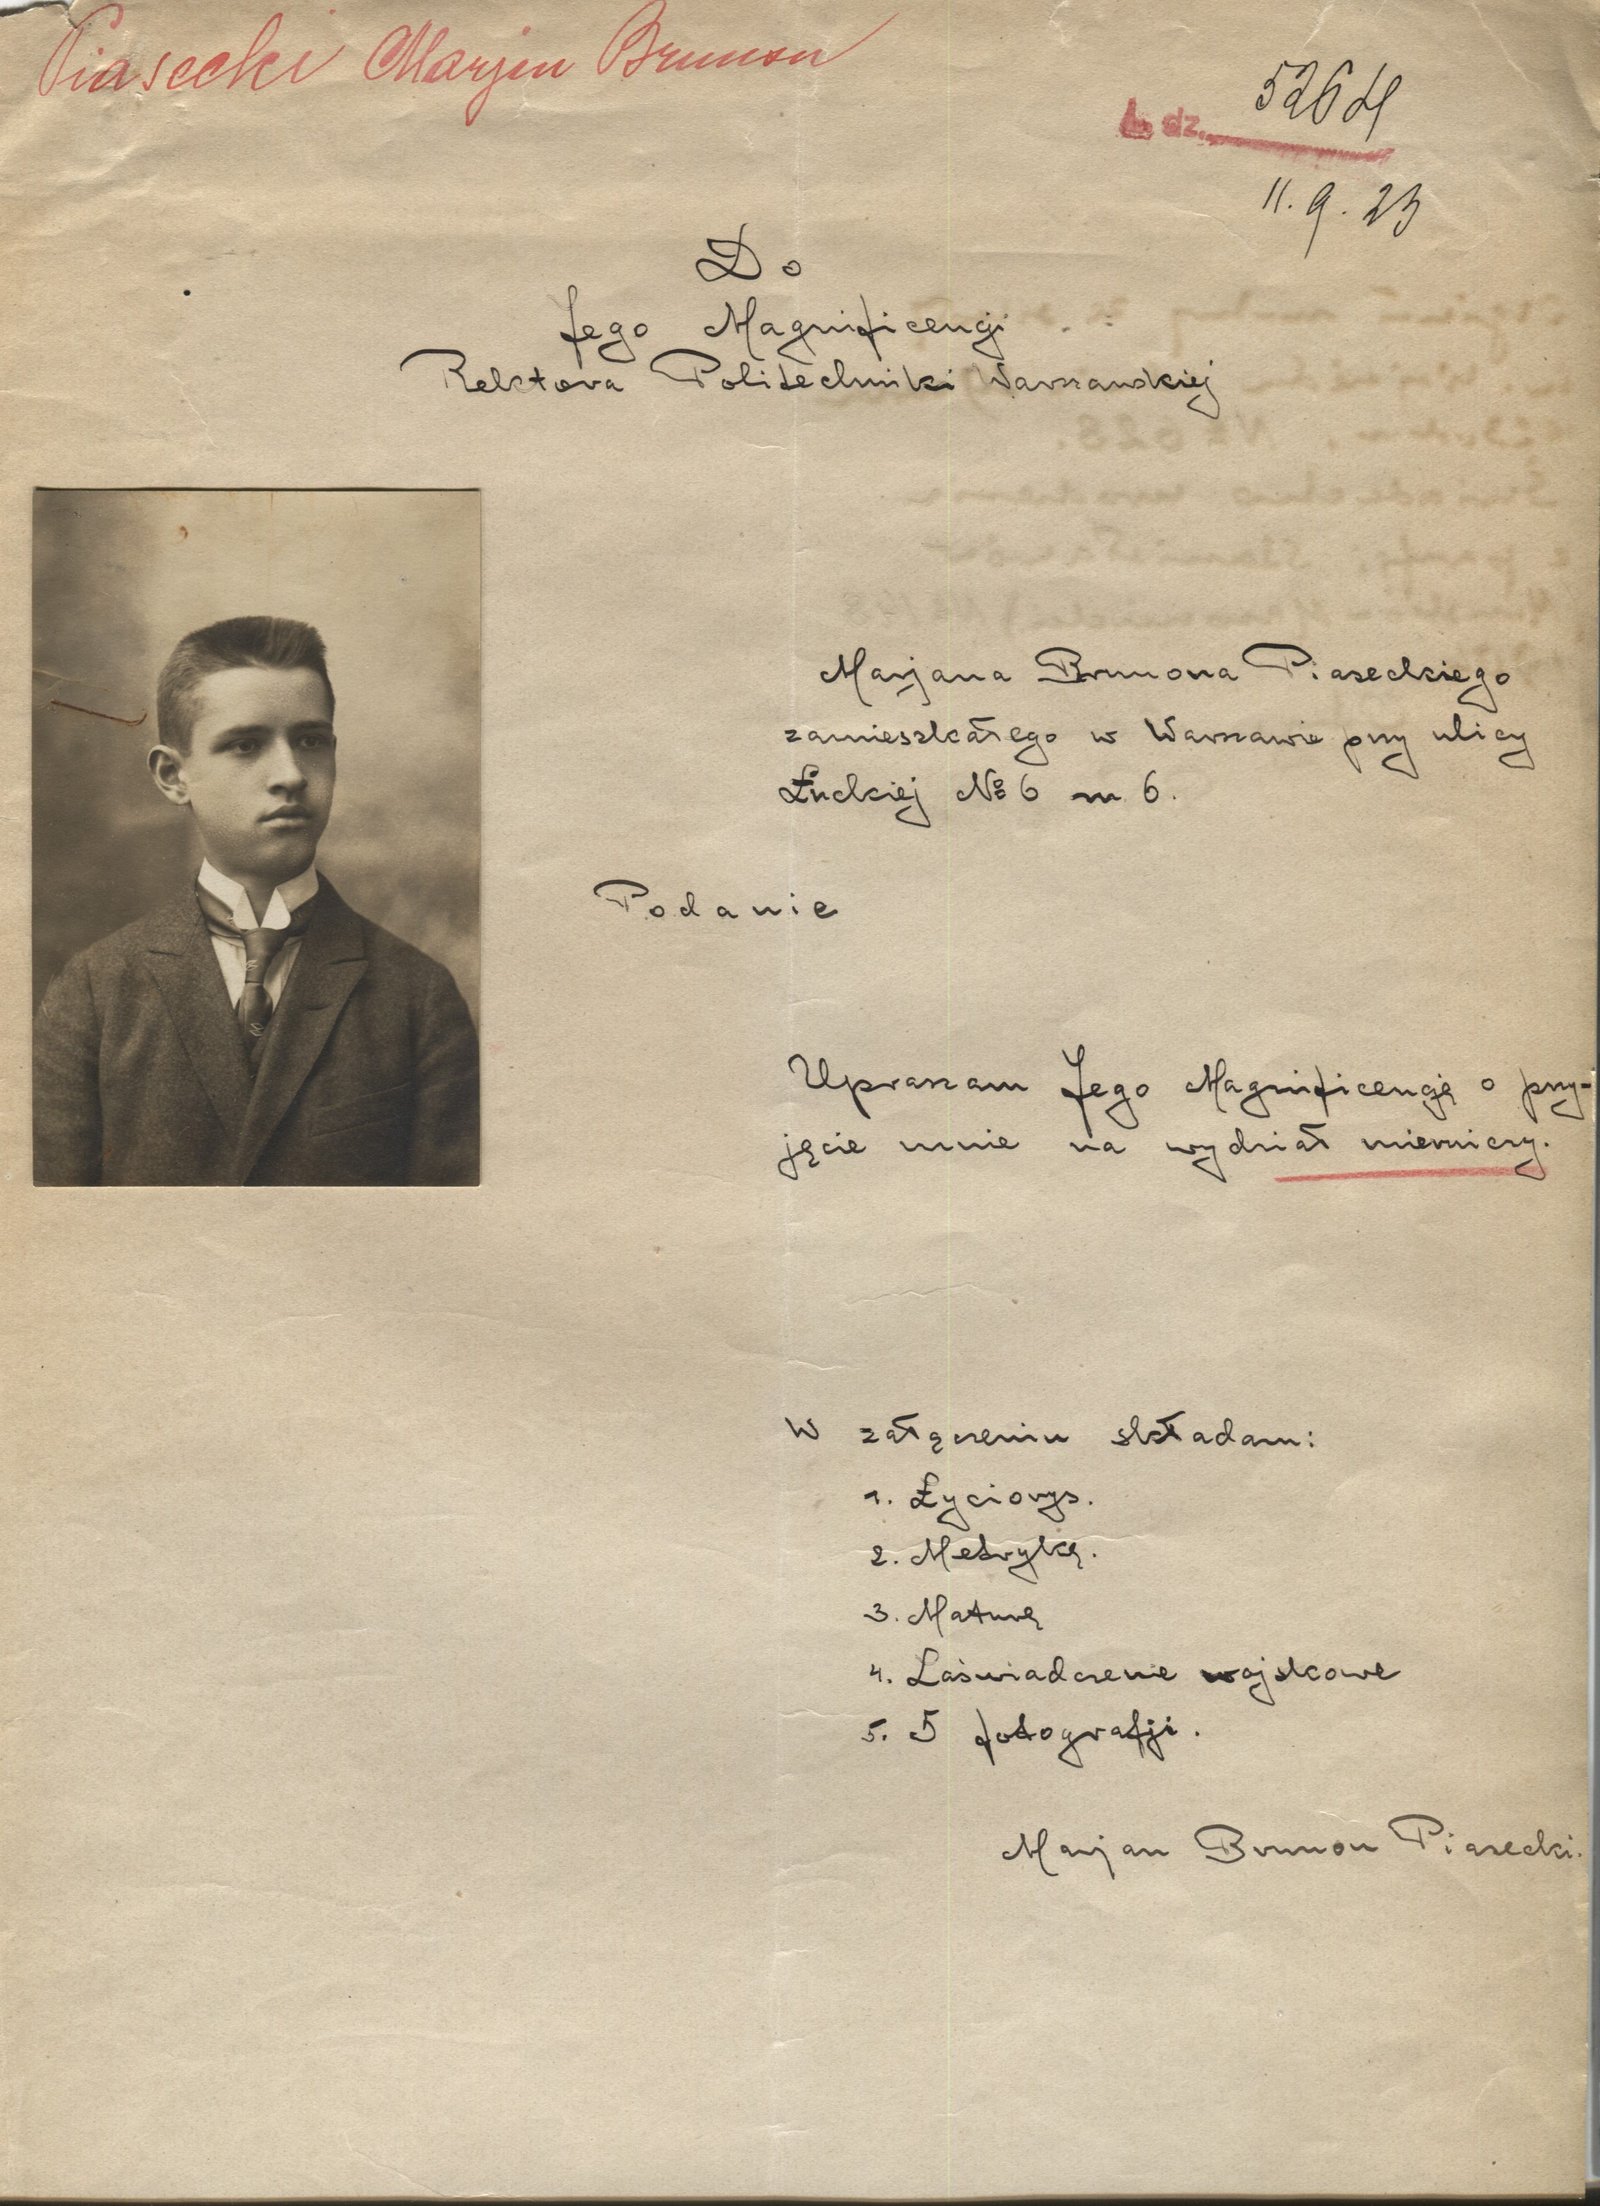 Piasecki Marjan Brunon
L. dz. 5264
11. 9. 23
Do
Jego Magnificencji
Rektora Politechniki Warszawskiej
Marjana Brunona Piaseckiego
zamieszkałego w Warszawie przy ulicy
Łuckiej № 6 m 6.
Podanie
Upraszam Jego Magnificencję o przy-
jęcie mnie na wydział mierniczy.
W załączeniu składam:
1. Życiorys.
2. Metrykę.
3. Maturę
4. Zaświadczenie wojskowe
5. 5 fotografji.
Marjan Brunon Piasecki.